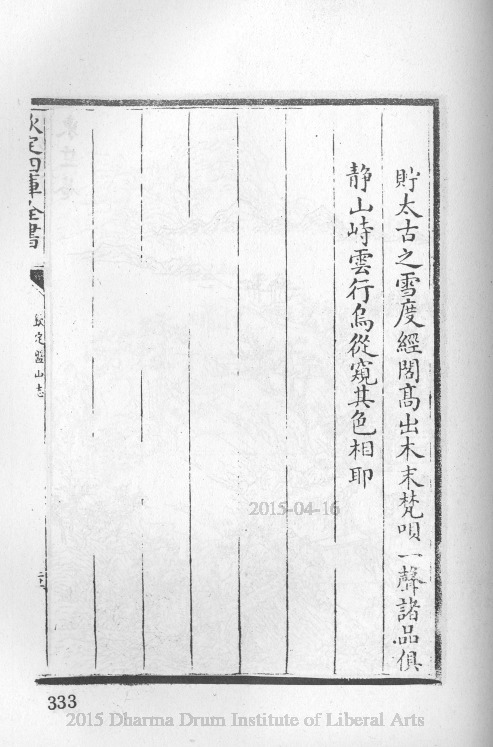 貯太古之雪度經閣高出木末梵唄一聲諸品俱
静山峙雲行烏從窺其色相耶
欽定四庫全書
欽定盤山志
2015-04-16
333
2015 Dharma Drum Institute of Liberal Arts